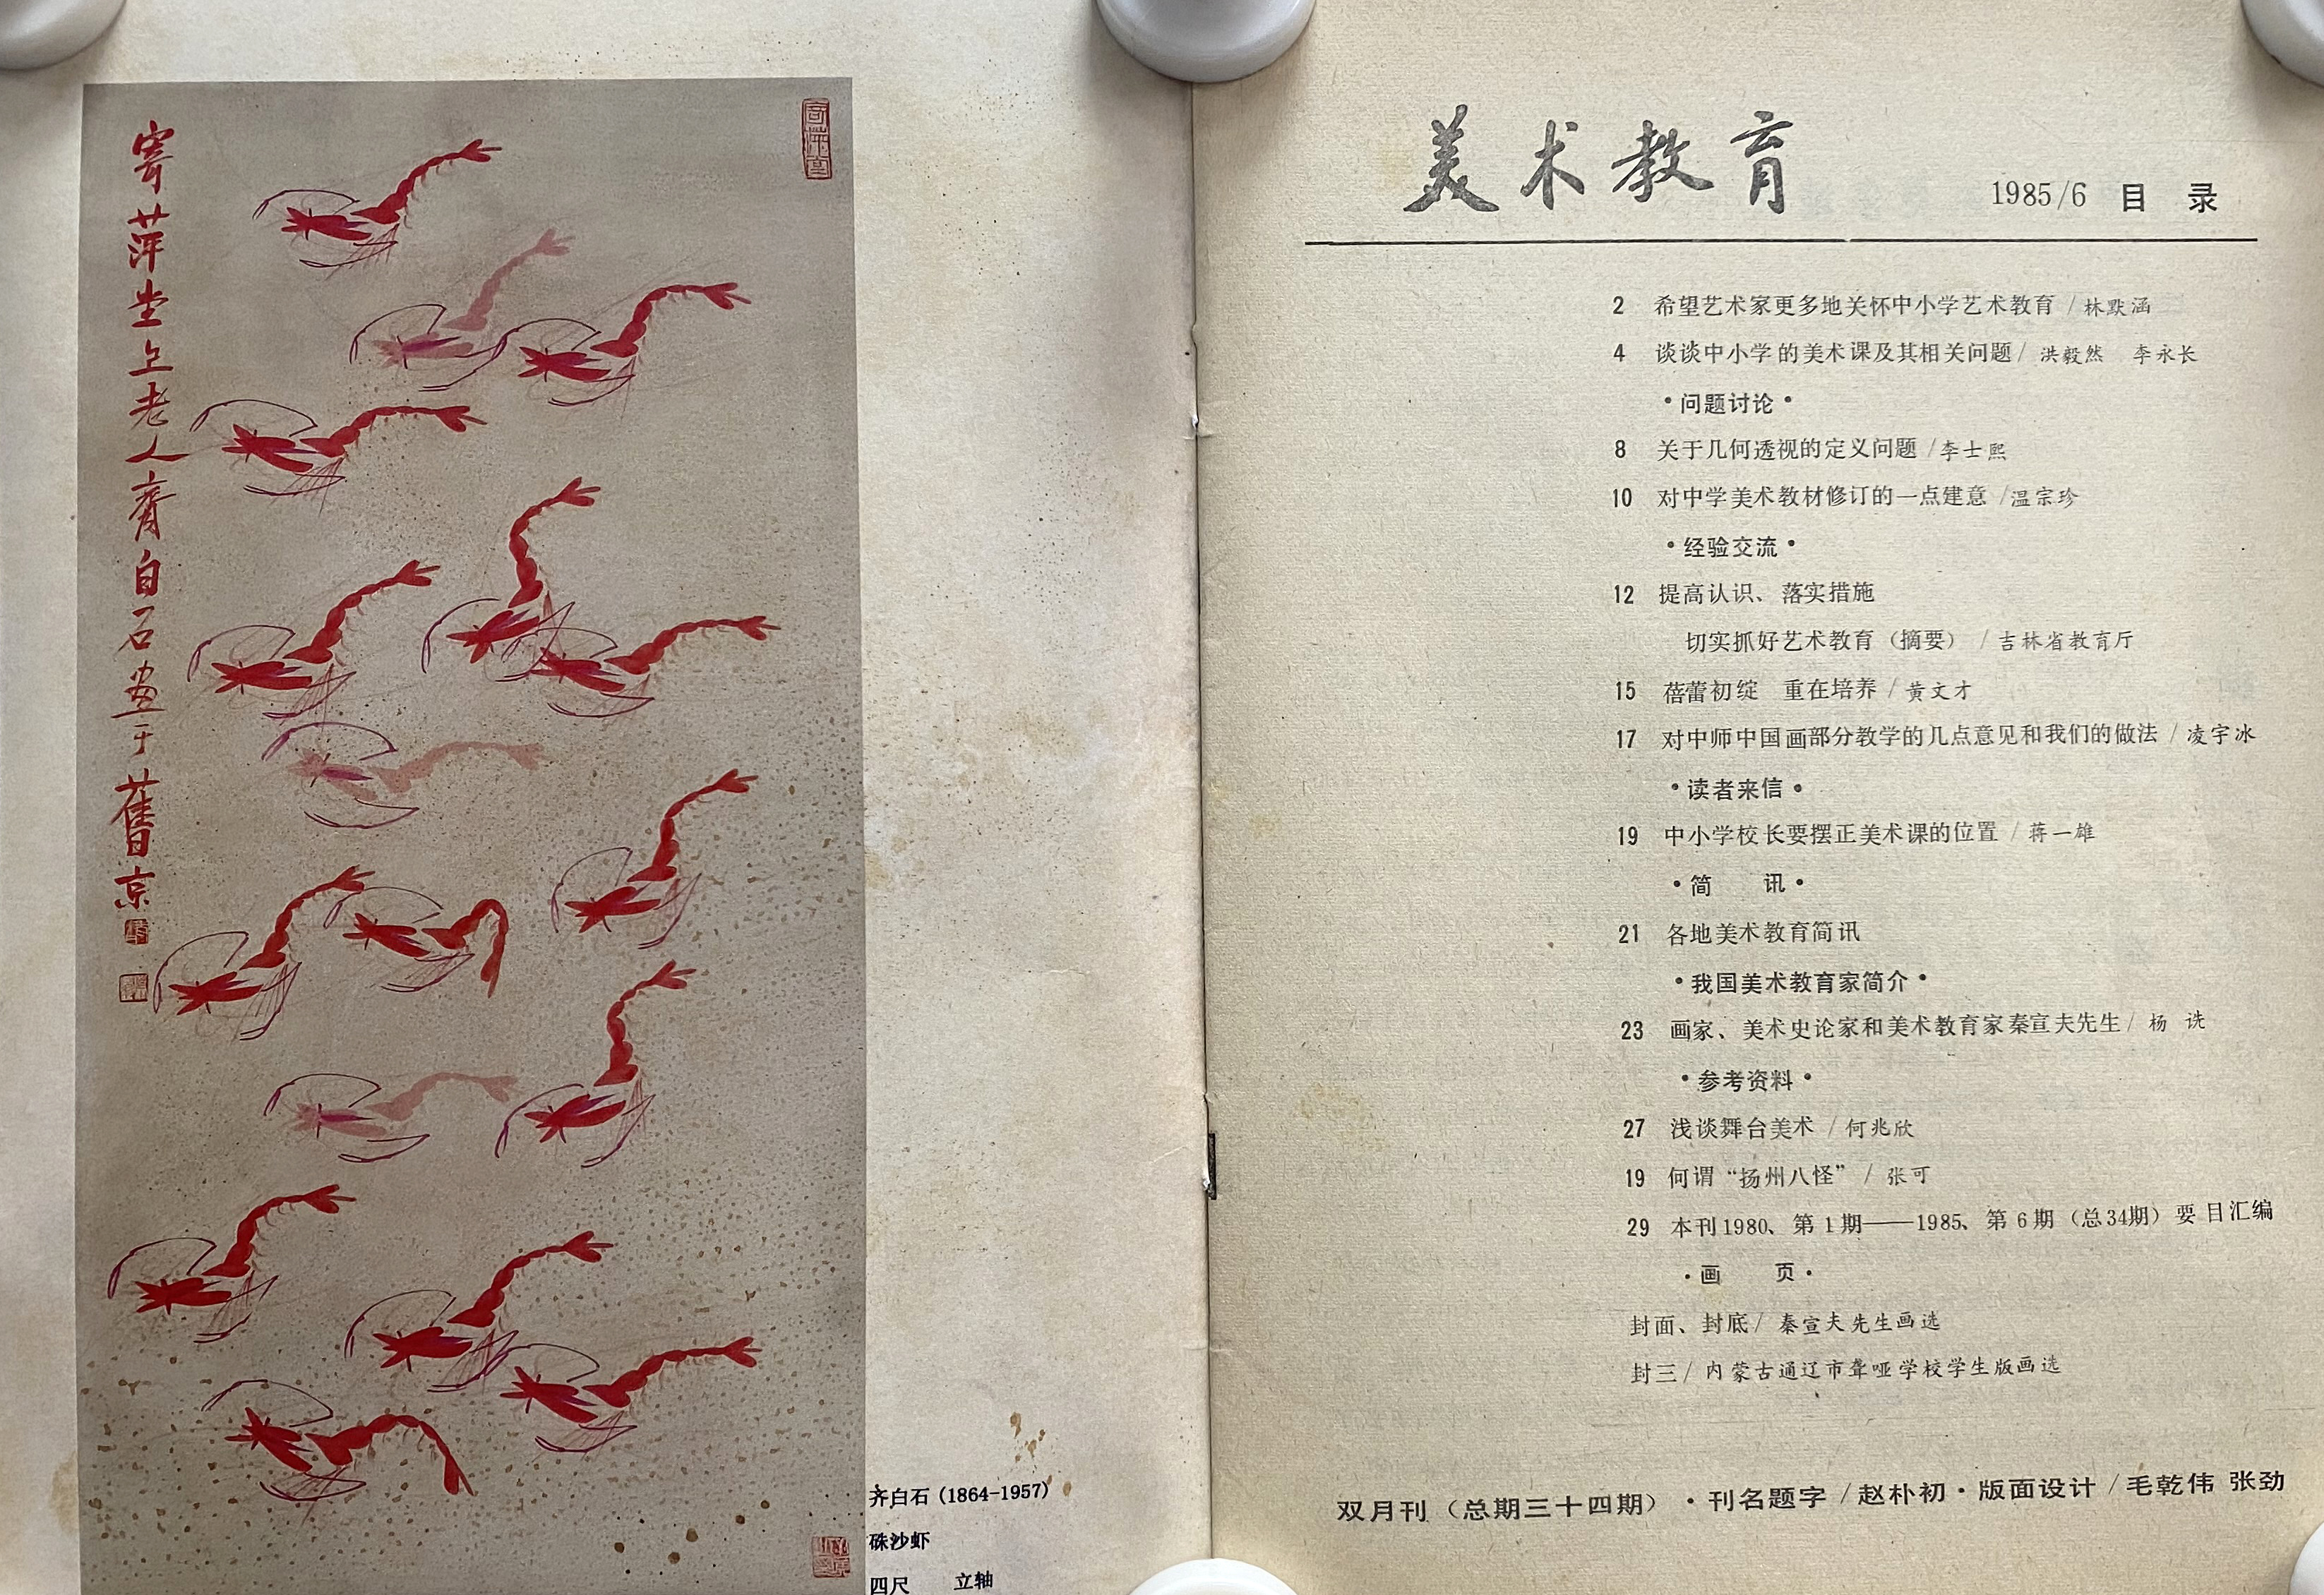 寄萍堂上老人齊白石画于舊京
齐白石 (1864-1957)
硃沙虾
四尺 立轴
美术教育
1985/6 目 录
2 希望艺术家更多地关怀中小学艺术教育 / 林默涵
4 谈谈中小学的美术课及其相关问题 / 洪毅然 李永长
•问题讨论•
8 关于几何透视的定义问题 / 李士熙
10 对中学美术教材修订的一点建意 / 温宗珍
•经验交流•
12 提高认识、落实措施
切实抓好艺术教育（摘要） / 吉林省教育厅
15 蓓蕾初绽 重在培养 / 黄文才
17 对中师中国画部分教学的几点意见和我们的做法 / 凌宇冰
•读者来信•
19 中小学校长要摆正美术课的位置 / 蒋一雄
•简 讯•
21 各地美术教育简讯
•我国美术教育家简介•
23 画家、美术史论家和美术教育家秦宣夫先生 / 杨 诜
•参考资料•
27 浅谈舞台美术 / 何兆欣
19 何谓“扬州八怪” / 张可
29 本刊1980、第1期——1985、第6期（总34期）要目汇编
•画 页•
封面、封底 / 秦宣夫先生画选
封三 / 内蒙古通辽市聋哑学校学生版画选
双月刊（总期三十四期）•刊名题字 / 赵朴初•版面设计 / 毛乾伟 张劲